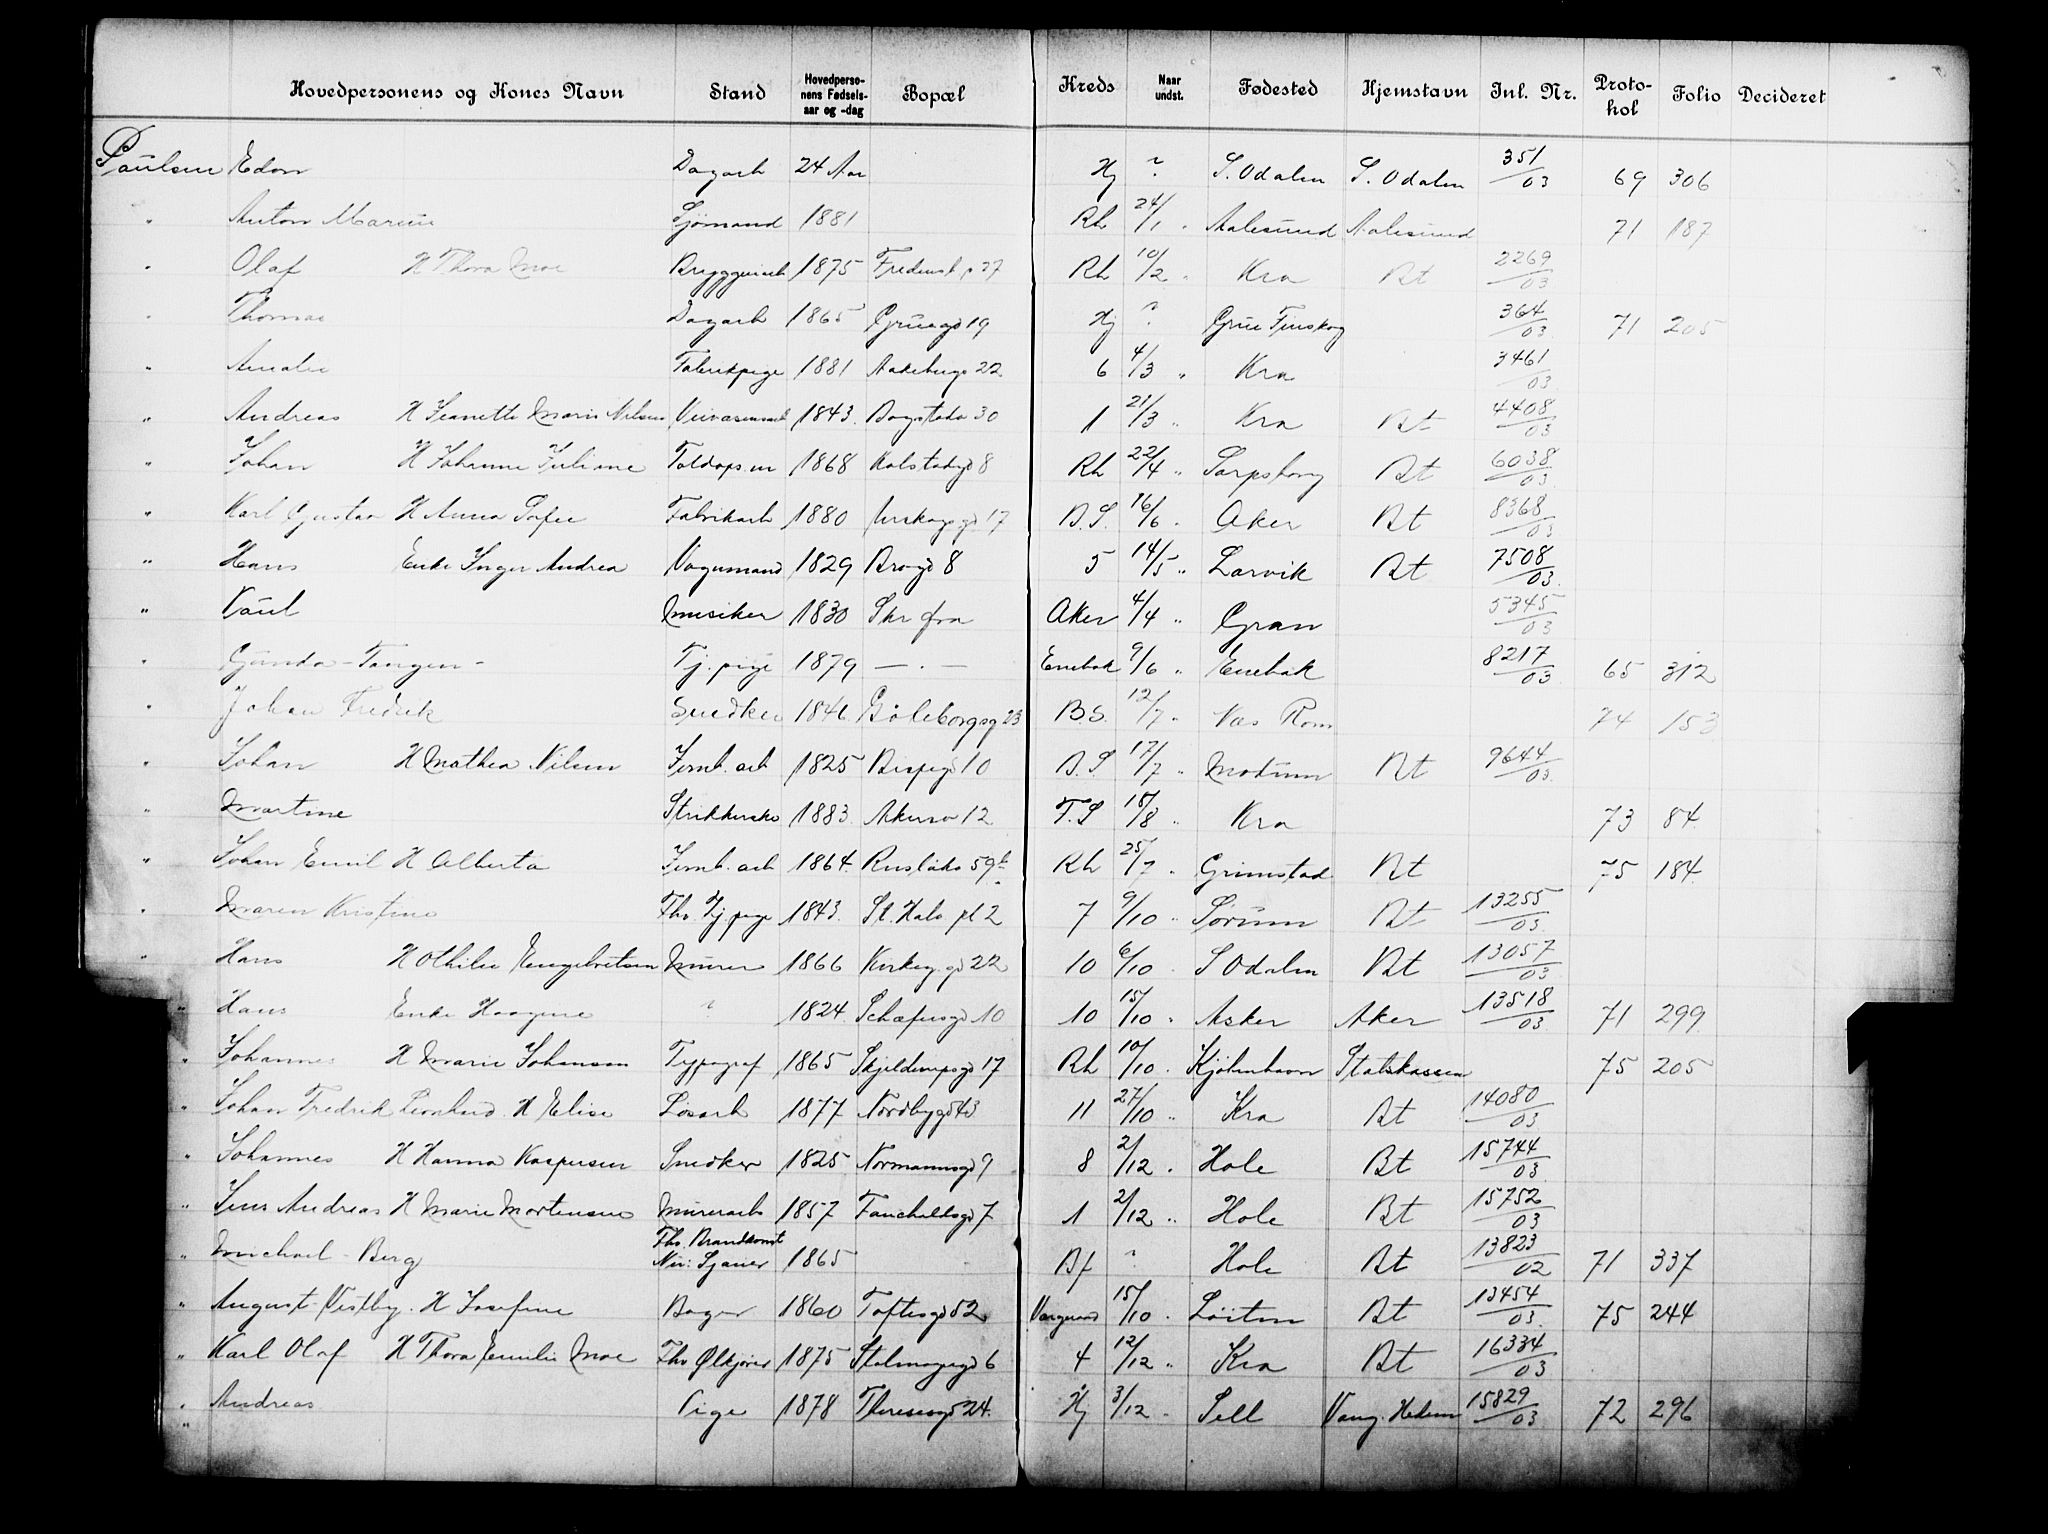 Hovedpersonens og Kones Navn Stand Hovedperso-nens Fødsels-aar og -dag Bopæl Kreds Naar undst. Fødested Hjemstavn Inl. Nr. Proto-kol Folio Decideret
Paulsen Edon Dagarb 24 Aar Hj ? S. Odalen S. Odalen 351/03 69 306
" Anton Marius Sjömand 1881 Rh 24/1 " Aalesund Aalesund 71 187
" Olaf H Thora Moe Bryggeriarb 1875 Fredensb. 27 Rh 10/2 " Kra Bt 2269/03
" Thomas Dagarb 1865 Gruegd 19 Hj ? Grue Finskog 364/03 71 205
" Amalie Fabrikpige 1881 Aakebergs 22 6 4/3 " Kra 3461/03
" Andreas H Jeanette Marie Nilsen 1843. Bogstadv 30 1 21/3 " Kra Bt 4408/03
" Johan H Johanne Juliane Toldops.m 1868 Kolstadgd 8 Rh 22/4 " Sarpsborg Bt 6038/03
" Karl Gustav H Anna Sofie Fabrikarb 1880 Urskogsgd 17 B.S. 16/6 " Aker Bt 8368/03
" Hans Enke Inger Andrea Vognmand 1829 Brogd 8 5 14/5 " Larvik Bt 7508/03.
" Paul Musiker 1830 Skr fra Aker 4/4 " Gran 5345/03
" Gunda - Tangen - Tj. pige 1879 — . — Enebak 9/6 " Enebak 8217/03 65 312
" Johan Fredrik Snedker 1846. Göteborgsg 23 B.S. 12/7 " Næs Rom 74 153
" Johan H Mathea Nilsen Jernb. arb 1825 Bispegd 10 B.S. 17/7 " Modum Bt 9644/03.
" Martine Strikkerske 1883. Akersv 12 F.S 15/8 " Kra 73 84.
" Johan Emil H Alberta Jernb. arb 1864. Ruslökv 59b Rh 25/7 " Grimstad Bt 75 184
" Maren Kristine Fhv Tj.pige 1843. St. Halv pl 2 7 9/10 " Sörum Bt 13255/03.
" Hans H Othilie Engebretsen Murer 1866 Kirkeg.gd 22 10 6/10 " S Odalen Bt 13057/03
" Hans Enke Haagine ? 1824. Schæfersgd 10 10 15/10 " Asker Aker 13518/03 71 299
" Johannes H Marie Johansen Typograf 1865 Skjeldrupsgd 17 Rh 10/10 " Kjöbenhavn Statskassen 75 205
" Johan Fredrik Leonhard H Elise Lösarb 1877 Nordbygd 43 11 27/10 " Kra Bt 14080/03
" Johannes H Hanna Kaspersen Snedker 1825 Normannsgd 9 8 2/12 " Hole Bt 15744/03
" Jens Andreas H Marie Mortensen Murerarb 1857 Fauchaldsgd 7 1 2/12 " Hole Bt 15752/03
" Michael - Berg Fhv. Brandkonst
Nu: Sjauer 1865 Bf ? Hole Bt 13823/02 71 337
" August Vestby. H Josefine Bager 1860 Toftesgd 52 15/10 " Löiten Bt 13454/03. 75 244
" Karl Olaf H Thora Emilie Moe Fhv Ølkjörer 1875 Stolmagergd 6 4 12/12 " Kra Bt 16334/03
" Andreas Pige 1878 Theresesgd 24. Hj 3/12 " Sell Vang. Hedem 15829/03 72 296
"